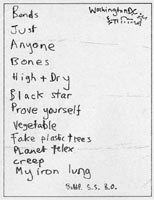 Bends
Washington DC
Just
Anyone
Bones
High + Dry
Black star
Prove yourself
Vegetable
Fake plastic trees
Planet telex
creep
My iron lung
S.S. B.O.